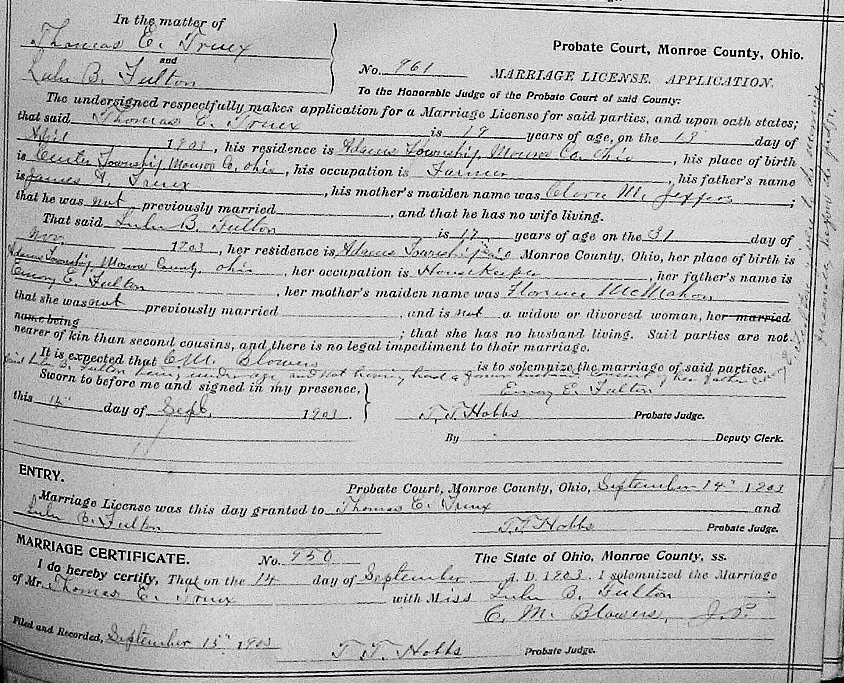 In the matter of
Thomas E. Truex
and
Lulu B. Fulton
Probate Court, Monroe County, Ohio.
No. 961 MARRIAGE LICENSE. APPLICATION.
To the Honorable Judge of the Probate Court of said County:
The undersigned respectfully makes application for a Marriage License for said parties, and upon oath states;
that said Thomas E. Truex is 19 years of age, on the 18 day of
April 1903, his residence is Adams Township, Monroe Co. Ohio, his place of birth
is Center Township Monroe Co, Ohio, his occupation is Farmer, his father's name
is James Truex, his mother's maiden name was Clora M. Jeffers;
that he was not previously married, and that he has no wife living.
That said Lulu B. Fulton is 17 years of age on the 31 day of
1903, her residence is Adams Township Monroe County, Ohio, her place of birth is
Adams Township, Monroe County, Ohio, her occupation is Housekeeper, her father's name is
Emory E. Fulton, her mother's maiden name was Florence McMahon
that she was not previously married, and is not a widow or divorced woman, her married
name being; that she has no husband living. Said parties are not
nearer of kin than second cousins, and there is no legal impediment to their marriage.
It is expected that C. M. Blowers is to solemnize the marriage of said parties.
said Lulu B. Fulton being under age and not having had a former husband consent of her father
Sworn to before me and signed in my presence, Emory E. Fulton
this 14" day of Sept. 1903 T. T. Hobbs Probate Judge.
By Deputy Clerk.
ENTRY.
Probate Court, Monroe County, Ohio, September 14" 1903
Marriage License was this day granted to Thomas E. Truex and
Lulu B. Fulton
T. T. Hobbs Probate Judge.
MARRIAGE CERTIFICATE. No. 950 The State of Ohio, Monroe County, ss.
I do hereby certify, That on the 14 day of September A. D. 1903. I solemnized the Marriage
of Mr. Thomas E. Truex with Miss Lulu B. Fulton
C. M. Blowers, J. P.
Filed and Recorded, September 15" 1903
T. T. Hobbs Probate Judge.